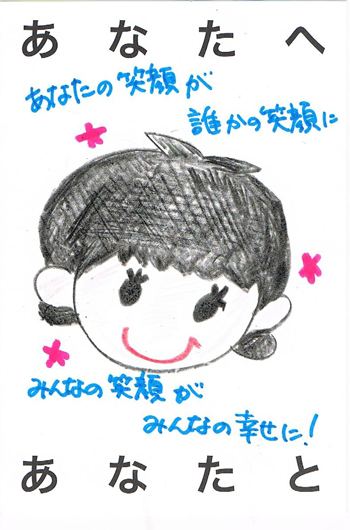 あなたへ
あなたの笑顔が
誰かの笑顔に
みんなの笑顔が
みんなの幸せに!
あなたと